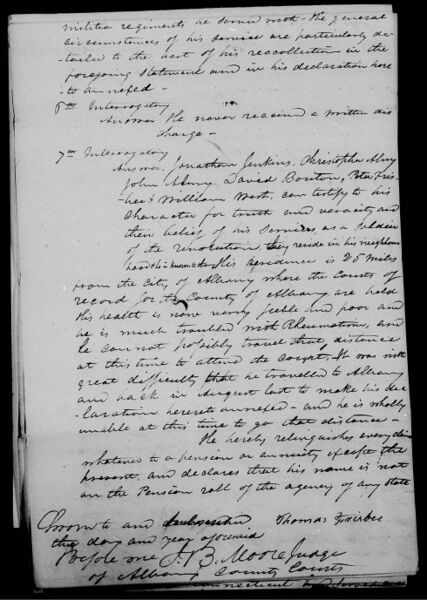 militia regiments he served with - the general
circumstances of his service are particularly de-
-tailed to the best of his recollection in the
foregoing statement and in his declaration here
-to annexed -
6th Interrogatory
Answer. He never received a written dis
charge -
7th Interrogatory
Answer, Jonathan Jenkins, Christopher Almy
John Almy, David Bouton, Peter Fris-
bee & William West, can testify to his
Character for truth and veracity and
their belief of his services, as a soldier
of the revolution, they reside in his neighbour
hood His residence is 25 miles
from the City of Albany where the Courts of
record for the County of Albany are held
His health is now very feeble and poor and
he is much troubled with Rheumatism, and
he can not possibly travel that distance
at this time to attend the court. It was with
great difficulty that he travelled to Albany
and back in August last to make his dec
-laration hereto annexed - and he is wholly
unable at this time to go that distance -
He hereby relinquishes every claim
whatever to a pension or annuity except the
present, and declares that his name is not
on the Pension roll of the agency of any State
Sworn to and subscribed Thomas
the day and year aforesaid
Before me J. B. Moore Judge
of Albany County Courts